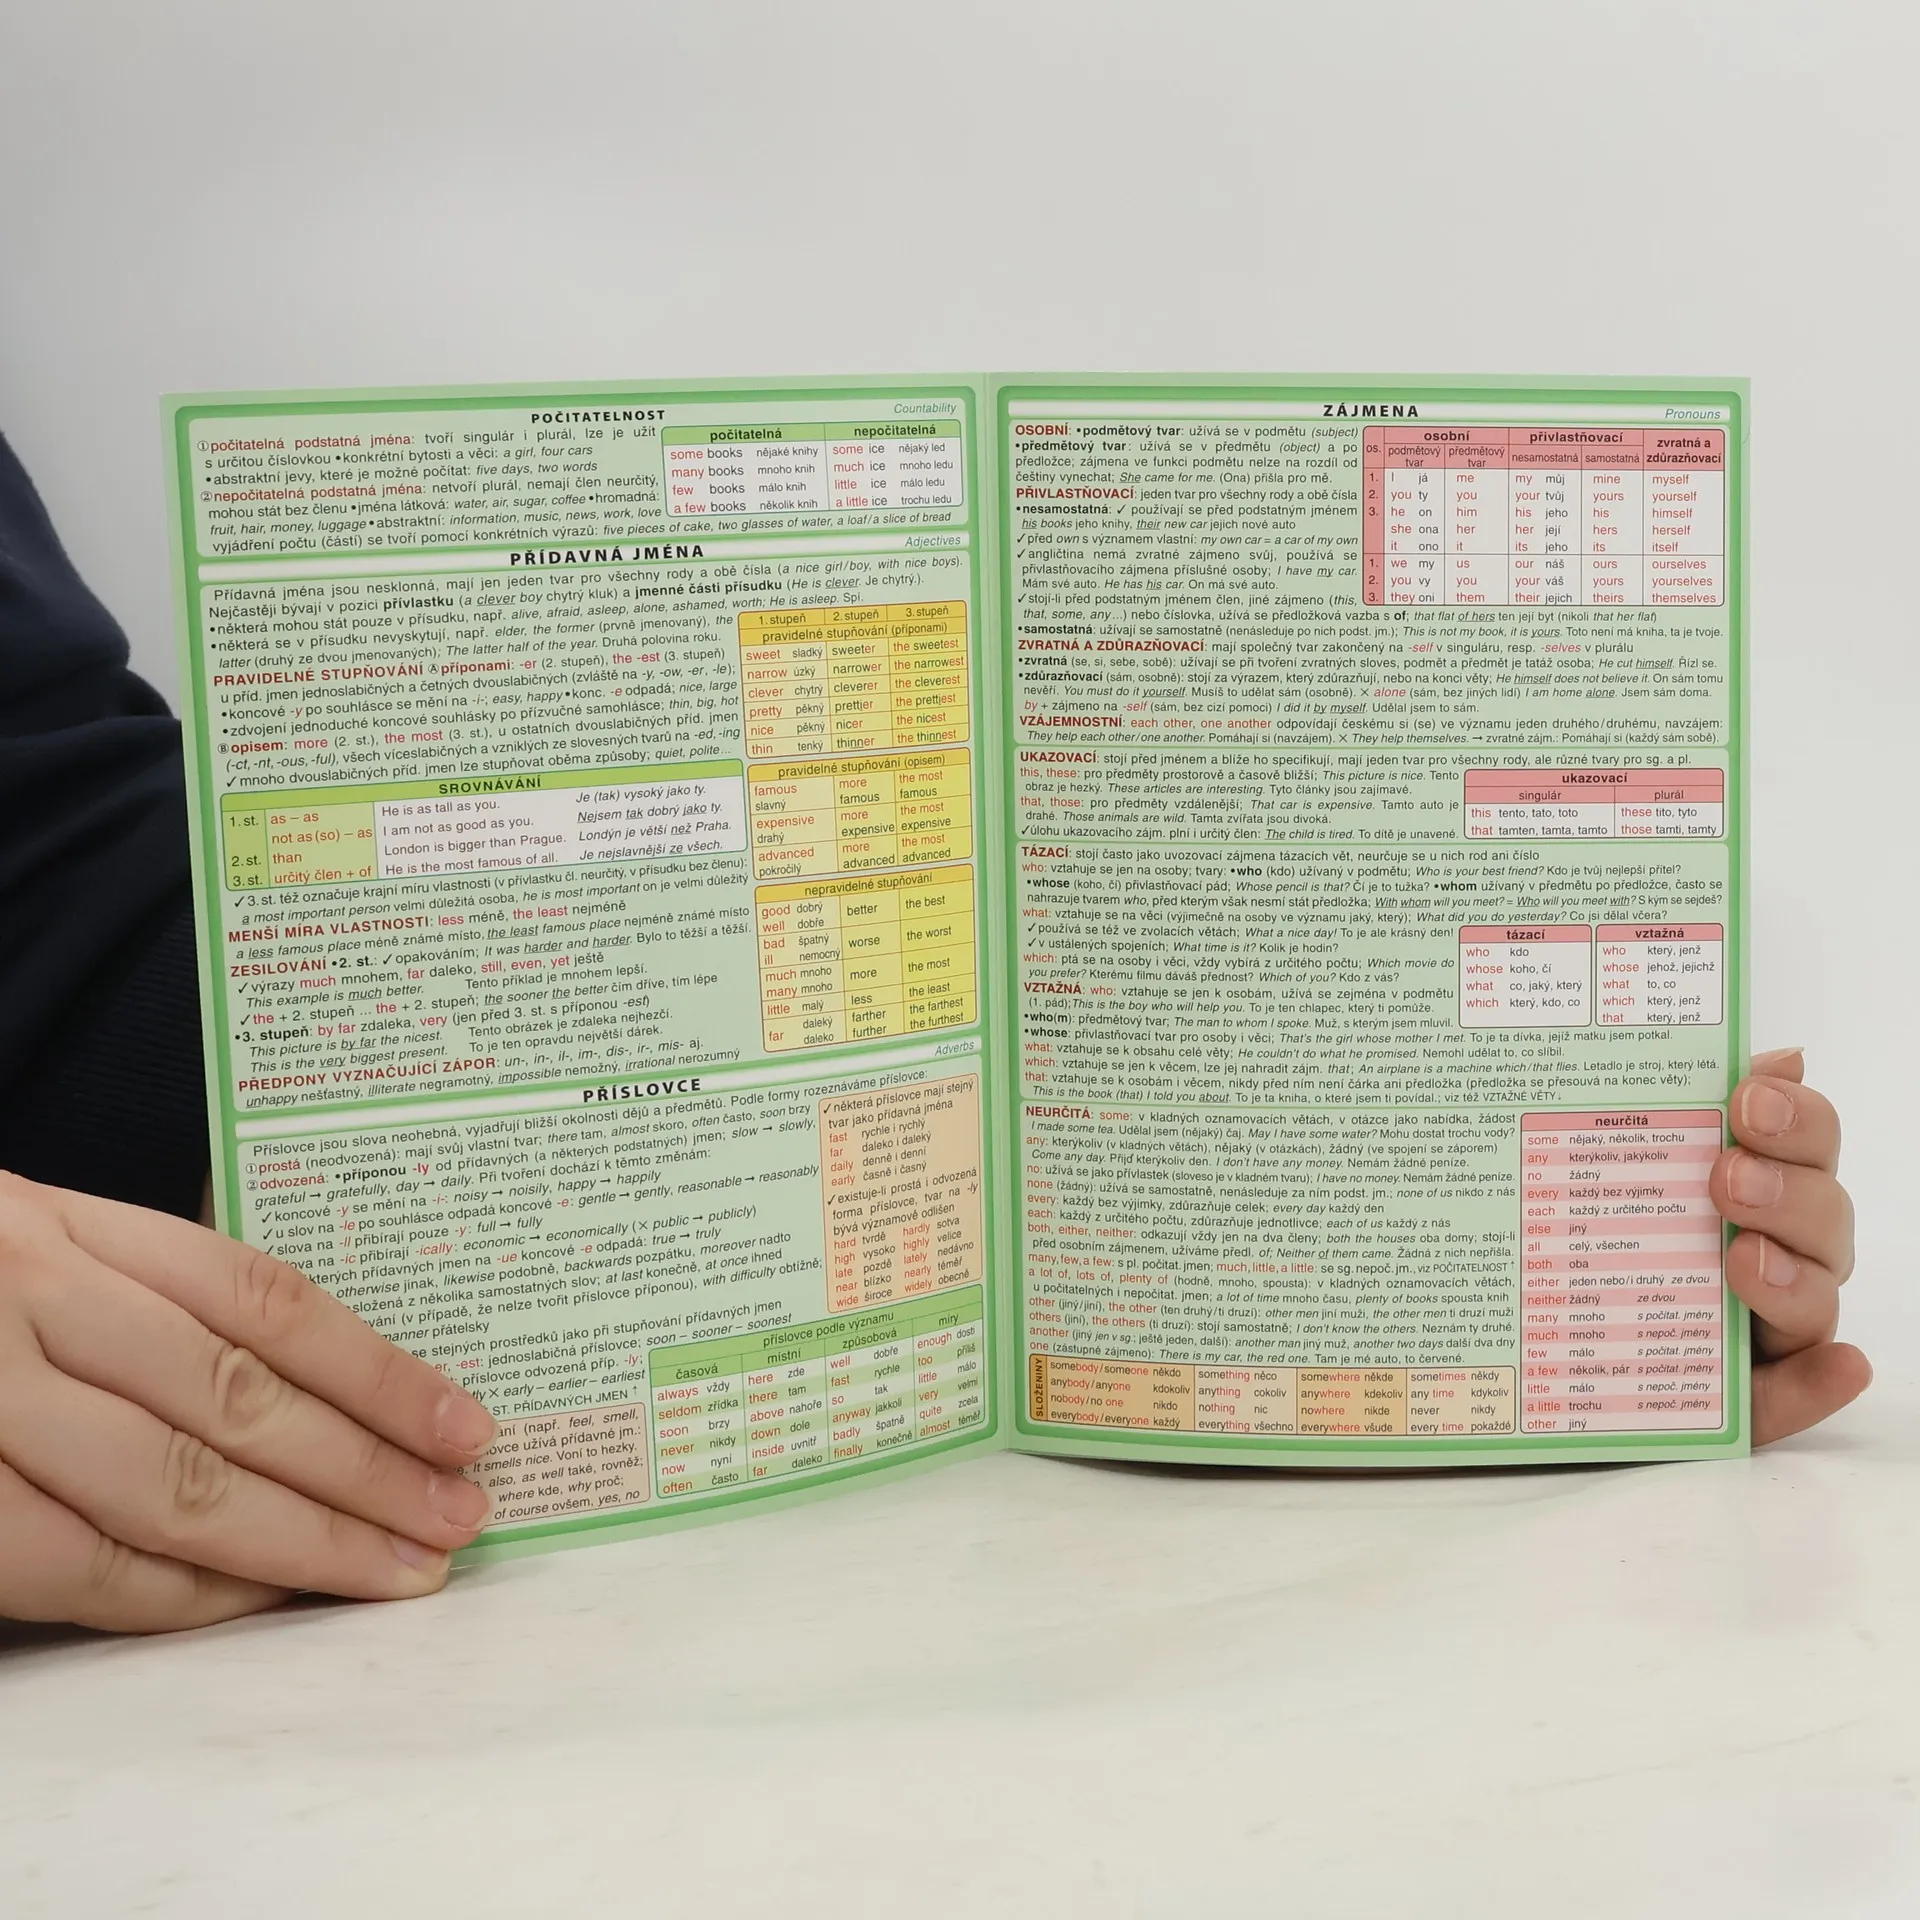 POČITATELNOST
Countability
①počitatelná podstatná jména: tvoří singulár i plurál, lze je užít
s určitou číslovkou •konkrétní bytosti a věci: a girl, four cars
•abstraktní jevy, které je možné počítat: five days, two words
②nepočitatelná podstatná jména: netvoří plurál, nemají člen neurčitý,
mohou stát bez členu •jména látková: water, air, sugar, coffee •hromadná:
fruit, hair, money, luggage •abstraktní: information, music, news, work, love
vyjádření počtu (části) se tvoří pomocí konkrétních výrazů: five pieces of cake, two glasses of water, a loaf/a slice of bread
počitatelná nepočitatelná
some books nějaké knihy some ice nějaký led
many books mnoho knih much ice mnoho ledu
few books málo knih little ice málo ledu
a few books několik knih a little ice trochu ledu
PŘÍDAVNÁ JMÉNA
Adjectives
Přídavná jména jsou nesklonná, mají jen jeden tvar pro všechny rody a obě čísla (a nice girl/boy, with nice boys).
Nejčastěji bývají v pozici přívlastku (a clever boy chytrý kluk) a jmenné části přísudku (He is clever. Je chytrý.).
•některá mohou stát pouze v přísudku, např. alive, afraid, asleep, alone, ashamed, worth; He is asleep. Spí.
•některá se v přísudku nevyskytují, např. elder, the former (prvně jmenovaný), the
latter (druhý ze dvou jmenovaných); The latter half of the year. Druhá polovina roku.
PRAVIDELNÉ STUPŇOVÁNÍ Ⓐpříponami: -er (2. stupeň), the -est (3. stupeň)
u příd. jmen jednoslabičných a četných dvouslabičných (zvláště na -y, -ow, -er, -le);
•koncové -y po souhlásce se mění na -i-; easy, happy •konc. -e odpadá; nice, large
•zdvojení jednoduché koncové souhlásky po přízvučné samohlásce; thin, big, hot
Ⓑopisem: more (2. st.), the most (3. st.), u ostatních dvouslabičných příd. jmen
(-ct, -nt, -ous, -ful), všech víceslabičných a vzniklých ze slovesných tvarů na -ed, -ing
✓mnoho dvouslabičných příd. jmen lze stupňovat oběma způsoby; quiet, polite...
1. stupeň 2. stupeň 3. stupeň
pravidelné stupňování (příponami)
sweet sladký sweeter the sweetest
narrow úzký narrower the narrowest
clever chytrý cleverer the cleverest
pretty pěkný prettier the prettiest
nice pěkný nicer the nicest
thin tenký thinner the thinnest
pravidelné stupňování (opisem)
famous more the most
slavný famous famous
expensive more the most
drahý expensive expensive
advanced more the most
pokročilý advanced advanced
nepravidelné stupňování
good dobrý better the best
well dobře
bad špatný worse the worst
ill nemocný
much mnoho more the most
many mnoho
little malý less the least
far daleký farther the farthest
daleko further the furthest
SROVNÁVÁNÍ
1. st. as – as He is as tall as you. Je (tak) vysoký jako ty.
not as (so) – as I am not as good as you. Nejsem tak dobrý jako ty.
2. st. than London is bigger than Prague. Londýn je větší než Praha.
3. st. určitý člen + of He is the most famous of all. Je nejslavnější ze všech.
✓3. st. též označuje krajní míru vlastnosti (v přívlastku čl. neurčitý, v přísudku bez členu):
a most important person velmi důležitá osoba, he is most important on je velmi důležitý
MENŠÍ MÍRA VLASTNOSTI: less méně, the least nejméně
a less famous place méně známé místo, the least famous place nejméně známé místo
ZESILOVÁNÍ •2. st.: ✓opakováním; It was harder and harder. Bylo to těžší a těžší.
✓výrazy much mnohem, far daleko, still, even, yet ještě
This example is much better. Tento příklad je mnohem lepší.
✓the + 2. stupeň ... the + 2. stupeň; the sooner the better čím dříve, tím lépe
•3. stupeň: by far zdaleka, very (jen před 3. st. s příponou -est)
This picture is by far the nicest. Tento obrázek je zdaleka nejhezčí.
This is the very biggest present. To je ten opravdu největší dárek.
PŘEDPONY VYZNAČUJÍCÍ ZÁPOR: un-, in-, il-, im-, dis-, ir-, mis- aj.
unhappy nešťastný, illiterate negramotný, impossible nemožný, irrational nerozumný
PŘÍSLOVCE
Adverbs
Příslovce jsou slova neohebná, vyjadřují bližší okolnosti dějů a předmětů. Podle formy rozeznáváme příslovce:
①prostá (neodvozená): mají svůj vlastní tvar; there tam, almost skoro, often často, soon brzy
②odvozená: •příponou -ly od přídavných (a některých podstatných) jmen; slow → slowly,
grateful → gratefully, day → daily. Při tvoření dochází k těmto změnám:
✓koncové -y se mění na -i-: noisy → noisily, happy → happily
✓u slov na -le po souhlásce odpadá koncové -e: gentle → gently, reasonable → reasonably
✓slova na -ll přibírají pouze -y: full → fully
na -ic přibírají -ically: economic → economically (× public → publicly)
přídavných jmen na -ue koncové -e odpadá: true → truly
otherwise jinak, likewise podobně, backwards pozpátku, moreover nadto
složená z několika samostatných slov; at last konečně, at once ihned
(v případě, že nelze tvořit příslovce příponou), with difficulty obtížně;
manner přátelsky
se stejných prostředků jako při stupňování přídavných jmen
-er, -est: jednoslabičná příslovce; soon – sooner – soonest
příslovce odvozená příp. -ly;
× early – earlier – earliest
ST. PŘÍDAVNÝCH JMEN ↑
(např. feel, smell,
užívá přídavné jm.:
It smells nice. Voní to hezky.
also, as well také, rovněž;
where kde, why proč;
of course ovšem, yes, no
✓některá příslovce mají stejný
tvar jako přídavná jména
fast rychle i rychlý
far daleko i daleký
daily denně i denní
early časně i časný
✓existuje-li prostá i odvozená
forma příslovce, tvar na -ly
bývá významově odlišen
hard tvrdě hardly sotva
high vysoko highly velice
late pozdě lately nedávno
near blízko nearly téměř
wide široce widely obecně
příslovce podle významu
časová místní způsobová míry
always vždy here zde well dobře enough dosti
seldom zřídka there tam fast rychle too příliš
soon brzy above nahoře so tak little málo
never nikdy down dole anyway jakkoli very velmi
now nyní inside uvnitř badly špatně quite zcela
often často far daleko finally konečně almost téměř
ZÁJMENA
Pronouns
OSOBNÍ: •podmětový tvar: užívá se v podmětu (subject)
•předmětový tvar: užívá se v předmětu (object) a po
předložce; zájmena ve funkci podmětu nelze na rozdíl od
češtiny vynechat; She came for me. (Ona) přišla pro mě.
PŘIVLASTŇOVACÍ: jeden tvar pro všechny rody a obě čísla
•nesamostatná: ✓ používají se před podstatným jménem
his books jeho knihy, their new car jejich nové auto
✓před own s významem vlastní: my own car = a car of my own
✓angličtina nemá zvratné zájmeno svůj, používá se
přivlastňovacího zájmena příslušné osoby; I have my car.
Mám své auto. He has his car. On má své auto.
✓stojí-li před podstatným jménem člen, jiné zájmeno (this,
that, some, any...) nebo číslovka, užívá se předložková vazba s of; that flat of hers ten její byt (nikoli that her flat)
•samostatná: užívají se samostatně (nenásleduje po nich podst. jm.); This is not my book, it is yours. Toto není má kniha, ta je tvoje.
os. osobní přivlastňovací zvratná a zdůrazňovací
podmětový tvar předmětový tvar nesamostatná samostatná
1. I já me my můj mine myself
2. you ty you your tvůj yours yourself
3. he on him his jeho his himself
she ona her her její hers herself
it ono it its jeho its itself
1. we my us our náš ours ourselves
2. you vy you your váš yours yourselves
3. they oni them their jejich theirs themselves
ZVRATNÁ A ZDŮRAZŇOVACÍ: mají společný tvar zakončený na -self v singuláru, resp. -selves v plurálu
•zvratná (se, si, sebe, sobě): užívají se při tvoření zvratných sloves, podmět a předmět je tatáž osoba; He cut himself. Řízl se.
•zdůrazňovací (sám, osobně): stojí za výrazem, který zdůrazňují, nebo na konci věty; He himself does not believe it. On sám tomu
nevěří. You must do it yourself. Musíš to udělat sám (osobně). × alone (sám, bez jiných lidí) I am home alone. Jsem sám doma.
by + zájmeno na -self (sám, bez cizí pomoci) I did it by myself. Udělal jsem to sám.
VZÁJEMNOSTNÍ: each other, one another odpovídají českému si (se) ve významu jeden druhého/druhému, navzájem:
They help each other/one another. Pomáhají si (navzájem). × They help themselves. → zvratné zájm.: Pomáhají si (každý sám sobě).
UKAZOVACÍ: stojí před jménem a blíže ho specifikují, mají jeden tvar pro všechny rody, ale různé tvary pro sg. a pl.
this, these: pro předměty prostorově a časově bližší; This picture is nice. Tento
obraz je hezký. These articles are interesting. Tyto články jsou zajímavé.
that, those: pro předměty vzdálenější; That car is expensive. Tamto auto je
drahé. Those animals are wild. Tamta zvířata jsou divoká.
✓úlohu ukazovacího zájm. plní i určitý člen: The child is tired. To dítě je unavené.
ukazovací
singulár plurál
this tento, tato, toto these tito, tyto
that tamten, tamta, tamto those tamti, tamty
TÁZACÍ: stojí často jako uvozovací zájmena tázacích vět, neurčuje se u nich rod ani číslo
who: vztahuje se jen na osoby; tvary: •who (kdo) užívaný v podmětu; Who is your best friend? Kdo je tvůj nejlepší přítel?
•whose (koho, čí) přivlastňovací pád; Whose pencil is that? Čí je to tužka? •whom užívaný v předmětu po předložce, často se
nahrazuje tvarem who, před kterým však nesmí stát předložka; With whom will you meet? = Who will you meet with? S kým se sejdeš?
what: vztahuje se na věci (výjimečně na osoby ve významu jaký, který); What did you do yesterday? Co jsi dělal včera?
✓používá se též ve zvolacích větách; What a nice day! To je ale krásný den!
✓v ustálených spojeních; What time is it? Kolik je hodin?
which: ptá se na osoby i věci, vždy vybírá z určitého počtu; Which movie do
you prefer? Kterému filmu dáváš přednost? Which of you? Kdo z vás?
VZTAŽNÁ: who: vztahuje se jen k osobám, užívá se zejména v podmětu
(1. pád); This is the boy who will help you. To je ten chlapec, který ti pomůže.
•who(m): předmětový tvar; The man to whom I spoke. Muž, s kterým jsem mluvil.
•whose: přivlastňovací tvar pro osoby i věci; That's the girl whose mother I met. To je ta dívka, jejíž matku jsem potkal.
what: vztahuje se k obsahu celé věty; He couldn't do what he promised. Nemohl udělat to, co slíbil.
which: vztahuje se jen k věcem, lze jej nahradit zájm. that; An airplane is a machine which/that flies. Letadlo je stroj, který létá.
that: vztahuje se k osobám i věcem, nikdy před ním není čárka ani předložka (předložka se přesouvá na konec věty);
This is the book (that) I told you about. To je ta kniha, o které jsem ti povídal.; viz též VZTAŽNÉ VĚTY↓
tázací vztažná
who kdo who který, jenž
whose koho, čí whose jehož, jejichž
what co, jaký, který what to, co
which který, kdo, co which který, jenž
that který, jenž
NEURČITÁ: some: v kladných oznamovacích větách, v otázce jako nabídka, žádost
I made some tea. Udělal jsem (nějaký) čaj. May I have some water? Mohu dostat trochu vody?
any: kterýkoliv (v kladných větách), nějaký (v otázkách), žádný (ve spojení se záporem)
Come any day. Přijď kterýkoliv den. I don't have any money. Nemám žádné peníze.
no: užívá se jako přívlastek (sloveso je v kladném tvaru); I have no money. Nemám žádné peníze.
none (žádný): užívá se samostatně, nenásleduje za ním podst. jm.; none of us nikdo z nás
every: každý bez výjimky, zdůrazňuje celek; every day každý den
each: každý z určitého počtu, zdůrazňuje jednotlivce; each of us každý z nás
both, either, neither: odkazují vždy jen na dva členy; both the houses oba domy; stojí-li
před osobním zájmenem, užíváme předl. of; Neither of them came. Žádná z nich nepřišla.
many, few, a few: s pl. počitat. jmen; much, little, a little: se sg. nepoč. jm., viz POČITATELNOST ↑
a lot of, lots of, plenty of (hodně, mnoho, spousta): v kladných oznamovacích větách,
u počitatelných i nepočitat. jmen; a lot of time mnoho času, plenty of books spousta knih
other (jiný/jiní), the other (ten druhý/ti druzí): other men jiní muži, the other men ti druzí muži
others (jiní), the others (ti druzí): stojí samostatně; I don't know the others. Neznám ty druhé.
another (jiný jen v sg.; ještě jeden, další): another man jiný muž, another two days další dva dny
one (zástupné zájmeno): There is my car, the red one. Tam je mé auto, to červené.
neurčitá
some nějaký, několik, trochu
any kterýkoliv, jakýkoliv
no žádný
every každý bez výjimky
each každý z určitého počtu
else jiný
all celý, všechen
both oba
either jeden nebo/i druhý ze dvou
neither žádný ze dvou
many mnoho s počitat. jmény
much mnoho s nepoč. jmény
few málo s počitat. jmény
a few několik, pár s počitat. jmény
little málo s nepoč. jmény
a little trochu s nepoč. jmény
other jiný
SLOŽENINY
somebody/someone někdo something něco somewhere někde sometimes někdy
anybody/anyone kdokoliv anything cokoliv anywhere kdekoliv any time kdykoliv
nobody/no one nikdo nothing nic nowhere nikde never nikdy
everybody/everyone každý everything všechno everywhere všude every time pokaždé